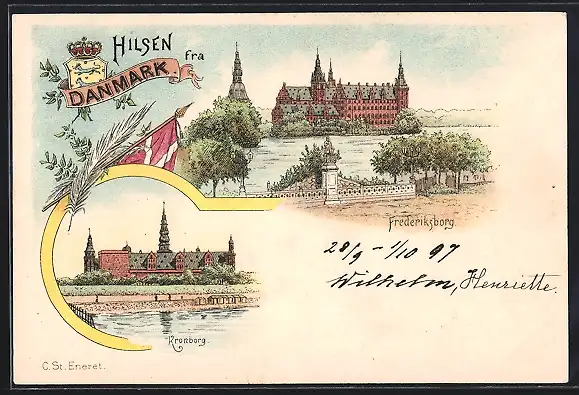 HILSEN
fra
DANMARK.
Frederiksborg.
28/9 - 1/10 97
Wilhelm, Henriette.
Kronborg.
C. St. Eneret.